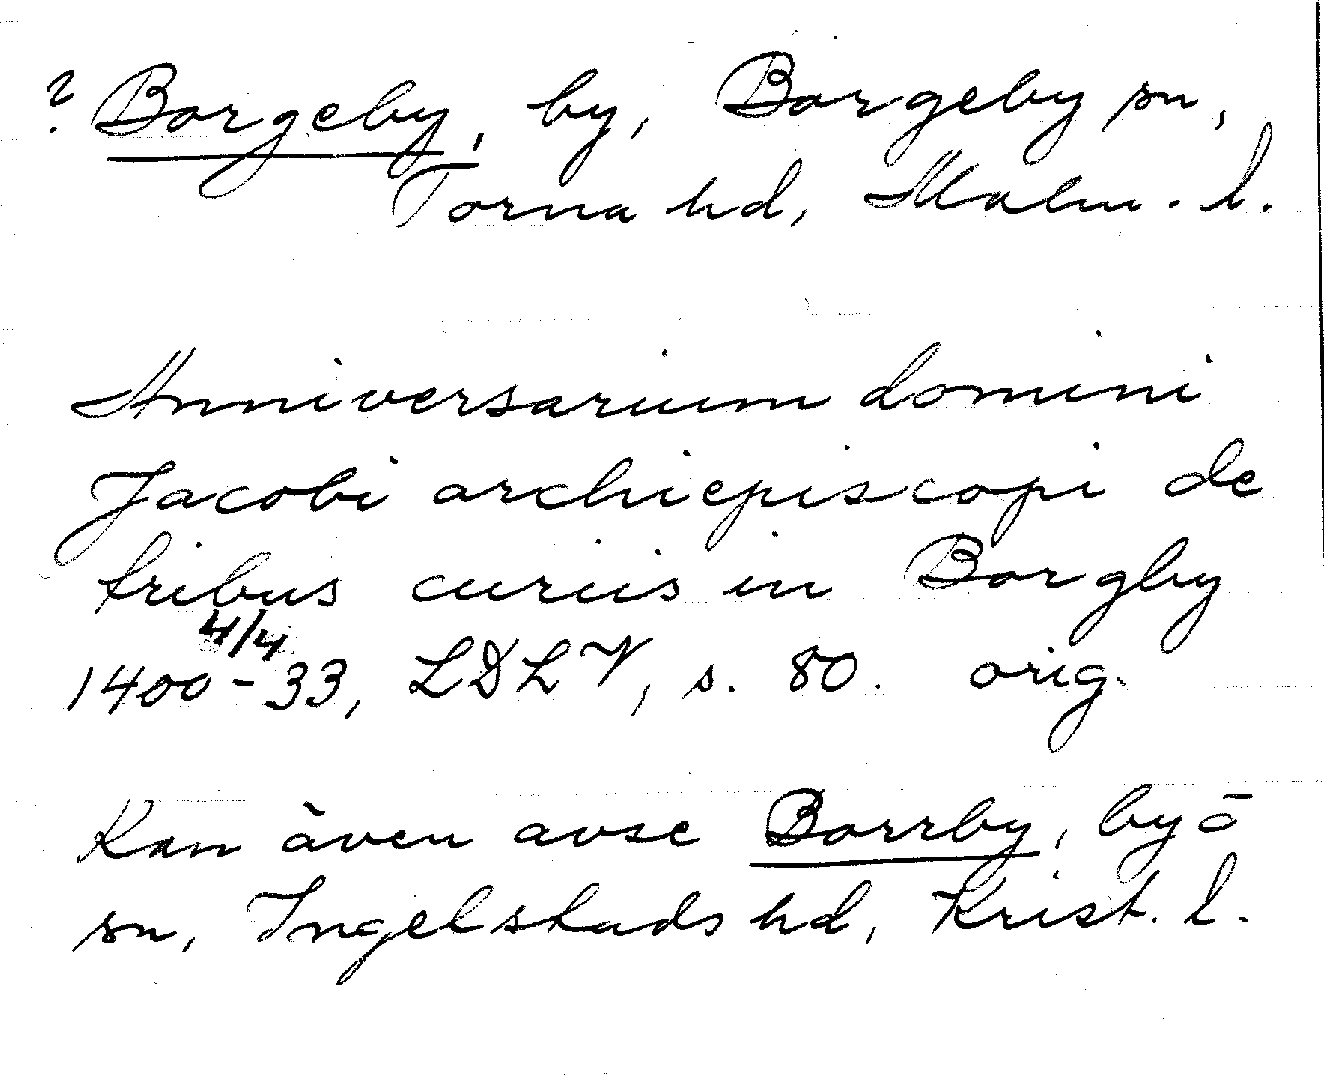 ? Borgeby, by, Borgeby sn,
Torna hd, Malm. l.
Anniversarium domini
Jacobi archiepiscopi de
tribus curiis in Borgby
4/4
1400-33, LDLV, s. 80. orig.
Kan även avse Borrby, by o
sn, Ingelstads hd, Krist. l.